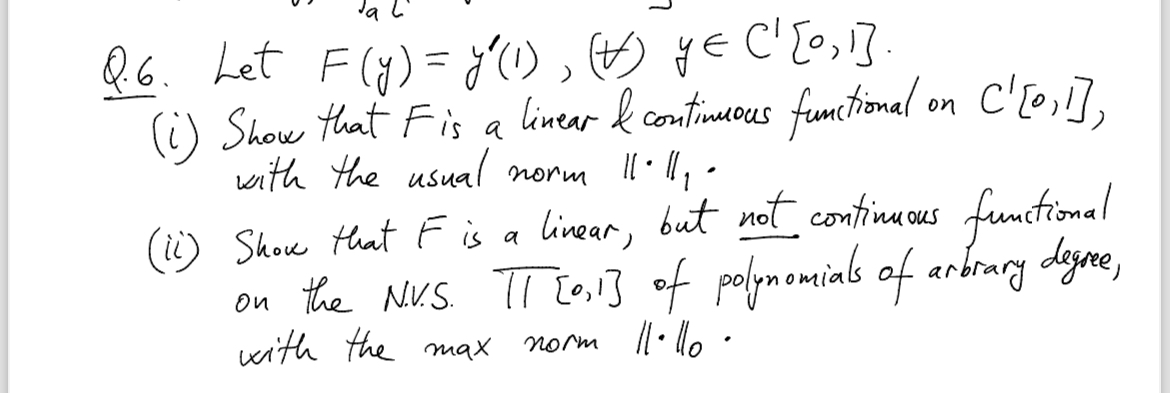 Q.6. Let F(y) = y'(1), (∀) y ∈ C'[0,1].
(i) Show that F is a linear & continuous functional on C'[0,1],
with the usual norm ||·||₁.
(ii) Show that F is a linear, but not continuous functional
on the N.V.S. Π[0,1] of polynomials of arbrary degree,
with the max norm ||·||₀.